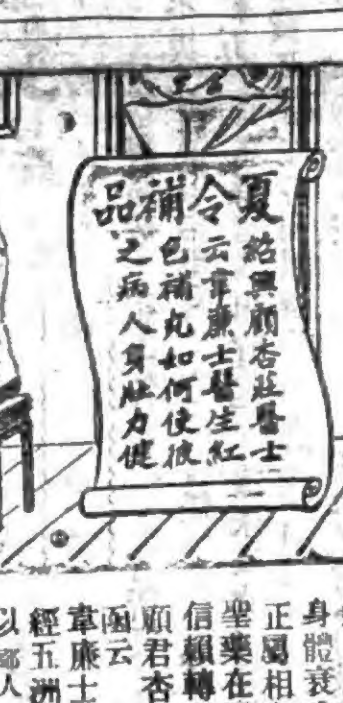 夏令補品
紹興顧杏莊醫士
云韋廉士醫生紅
色補丸如何使彼
之病人身壯力健
身體衰
正屬相
聖藥在
信賴轉
顧君杏
函云
韋廉士
經五洲
以鄙人